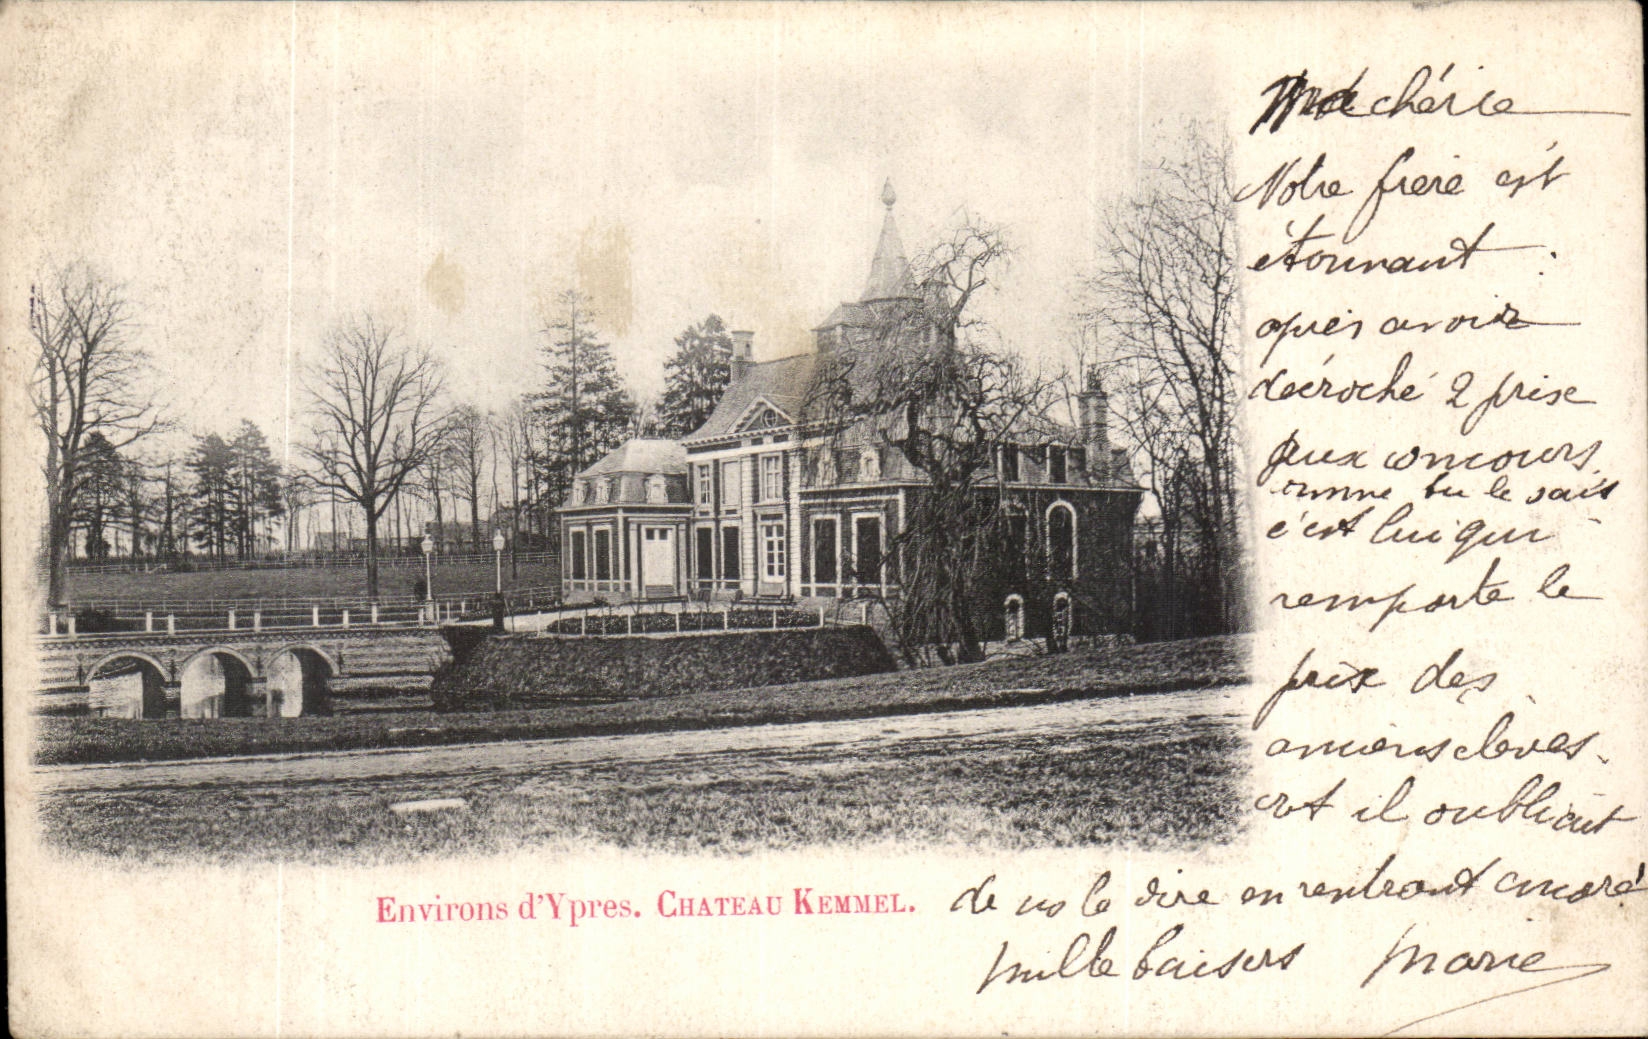 Ma chérie
Notre frère est
étonnant :
après avoir
décroché 2 prix
aux concours
comme tu le sais
c'est lui qui
remporte le
prix des
anciens élèves.
et il oubliait
de ns le dire en rentrant encore!
Mille baisers Marie
Environs d'Ypres. CHATEAU KEMMEL.